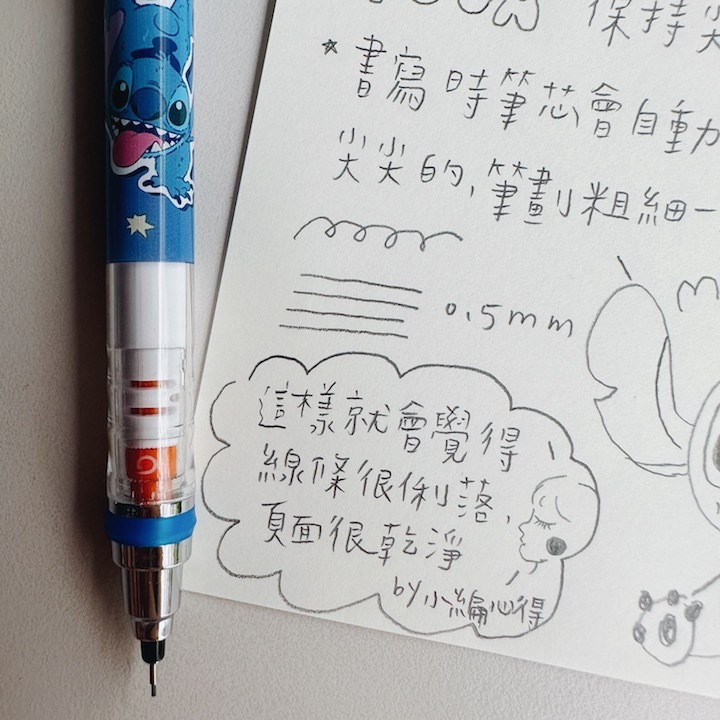 保持尖
*書寫時筆芯會自動
尖尖的,筆劃粗細一
0.5mm
這樣就會覺得
線條很俐落,
頁面很乾淨
by小編心得